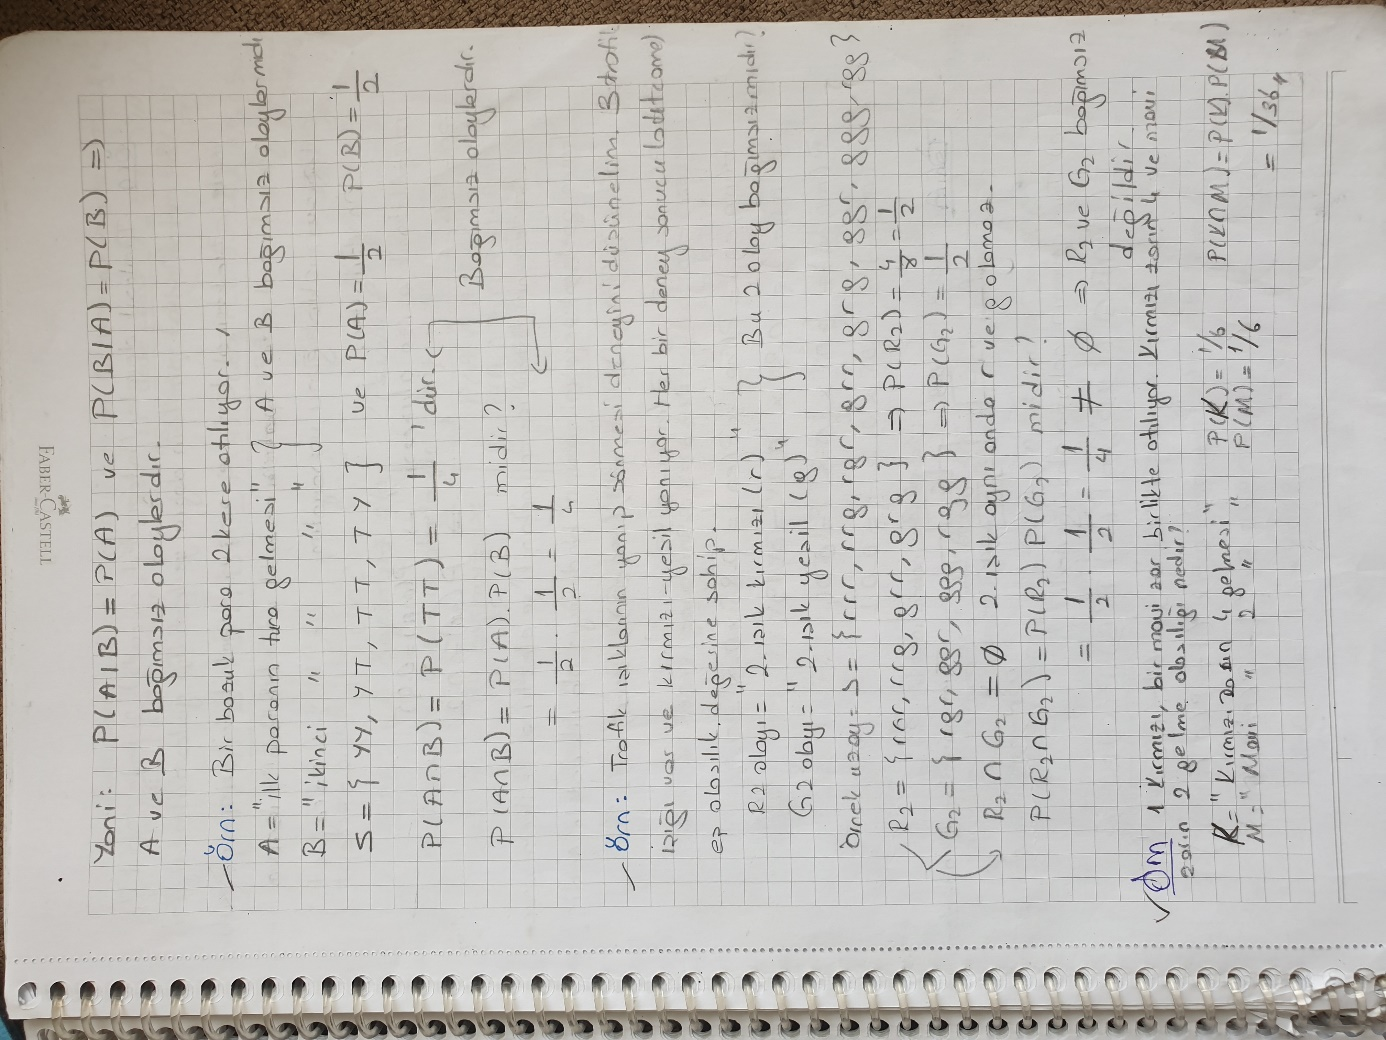 FABER-CASTELL
Yani: P(A|B) = P(A) ve P(B|A) = P(B) =)
A ve B bağımsız olaylardır.
Örn: Bir bozuk para 2 kere atılıyor.
A = "ilk paranın tura gelmesi" } A ve B bağımsız olaylar mıdı
B = "ikinci " " " "
S = { YY, YT, TT, TY } ve P(A) = 1/2 P(B) = 1/2
P(A∩B) = P(TT) = 1/4 'dür.
Bağımsız olaylardır.
P(A∩B) = P(A).P(B) midir?
= 1/2 . 1/2 = 1/4
Örn: Trafik ışıklarının yanıp sönmesi deneyini düşünelim. 3 trafik
ışığı var ve kırmızı-yeşil yanıyor. Her bir deney sonucu (outcome)
eş olasılık değerine sahip.
R2 olayı = "2. ışık kırmızı (r)" } Bu 2 olay bağımsız mıdır?
G2 olayı = "2. ışık yeşil (g)"
Örnek uzay = S = { rrr, rrg, rgr, grr, grg, ggr, ggg, rgg }
R2 = { rrr, rrg, grr, grg } => P(R2) = 4/8 = 1/2
G2 = { rgr, ggr, ggg, rgg } => P(G2) = 1/2
R2 ∩ G2 = ∅ 2. ışık aynı anda r ve g olamaz.
P(R2∩G2) = P(R2) P(G2) midir?
= 1/2 . 1/2 = 1/4 ≠ ∅ => R2 ve G2 bağımsız
değildir.
Örn 1 kırmızı, bir mavi zar birlikte atılıyor. Kırmızı zarın 4 ve mavi
zarın 2 gelme olasılığı nedir?
K = "Kırmızı zarın 4 gelmesi" P(K) = 1/6 P(K∩M) = P(K).P(M)
M = "Mavi " 2 " " P(M) = 1/6 = 1/36